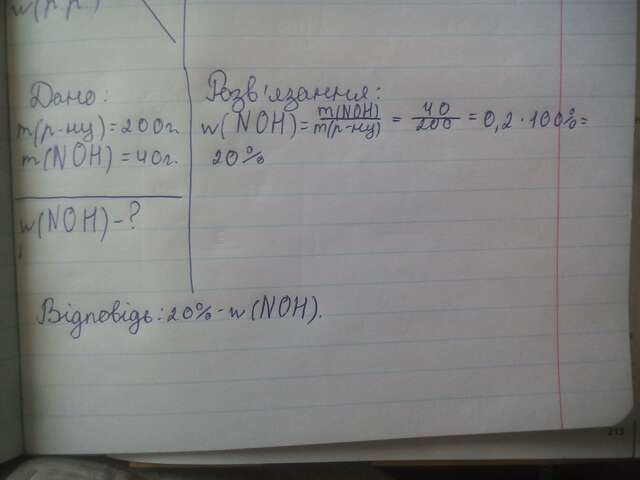 w(р.р.)
Дано:
m(р-ну)=200г.
m(NOH)=40г.
w(NOH)-?
Розв'язання:
w(NOH)=m(NOH)/m(р-ну)=40/200=0,2·100%=
20%
Відповідь:20%-w(NOH).
213